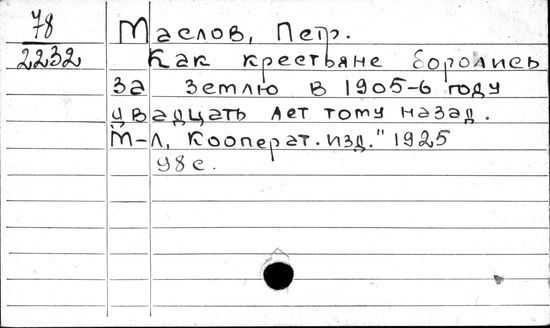 78
2232
Маслов, Петр.
Как крестьяне боролись
за землю в 1905-6 году
двадцать лет тому назад.
М-Л, Кооперат. изд." 1925
48 с.